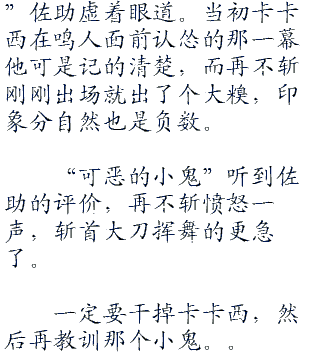 ”佐助虚着眼道。当初卡卡
西在鸣人面前认怂的那一幕
他可是记的清楚，而再不斩
刚刚出场就出了个大糗，印
象分自然也是负数。
“可恶的小鬼”听到佐
助的评价，再不斩愤怒一
声，斩首大刀挥舞的更急
了。
一定要干掉卡卡西，然
后再教训那个小鬼。。